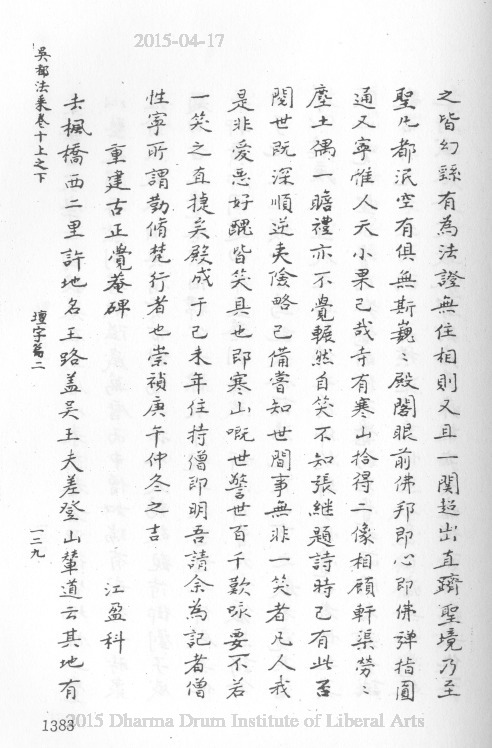 2015-04-17
之皆幻繇有為法證無住相則又且一関超出直躋聖境乃至
聖凡都泯空有俱無斯巍〻殿閣眼前佛邦即心即佛彈指圓
通又寧惟人天小果已哉寺有寒山拾得二像相顧軒渠勞〻
塵土偶一瞻禮亦不覺冁然自笑不知張繼題詩時已有此否
閱世既深順逆夷險略已備嘗知世間事無非一笑者凡人我
是非愛惡好醜皆笑具也即寒山嘅世警世百千歎咏要不若
一笑之直捷矣殿成于己未年住持僧即明吾請余為記者僧
性寧所謂勤脩梵行者也崇禎庚午仲冬之吉
重建古正覺菴碑
江盈科
去楓橋西二里許地名王路盖吴王夫差登山輦道云其地有
吳都法乘卷十上之下
壇字篇二
一二九
1383
2015 Dharma Drum Institute of Liberal Arts